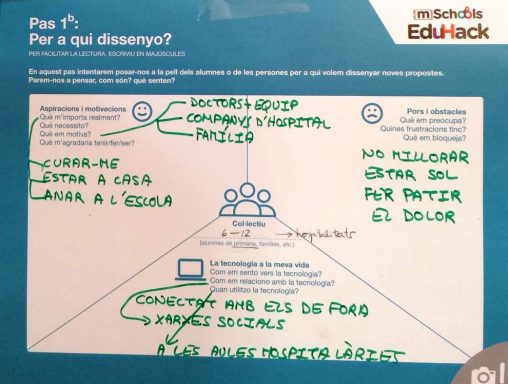 Pas 1b:
Per a qui dissenyo?
PER FACILITAR LA LECTURA, ESCRIVIU EN MAJÚSCULES
[m]Schools
EduHack
En aquest pas intentarem posar-nos a la pell dels alumnes o de les persones per a qui volem dissenyar noves propostes.
Parem-nos a pensar, com són? què senten?
Aspiracions i motivacions
Què m'importa realment?
Què necessito?
Què em motiva?
Què m'agradaria tenir/fer/ser?
DOCTORS + EQUIP
COMPANYS D'HOSPITAL
FAMÍLIA
CURAR-ME
ESTAR A CASA
ANAR A L'ESCOLA
Pors i obstacles
Què em preocupa?
Quines frustracions tinc?
Què em bloqueja?
NO MILLORAR
ESTAR SOL
FER PATIR
EL DOLOR
Col·lectiu
6-12 → hospitalitzats
(alumnes de primària, famílies, etc.)
La tecnologia a la meva vida
Com em sento vers la tecnologia?
Com em relaciono amb la tecnologia?
Quan utilitzo la tecnologia?
CONECTAT AMB ELS DE FORA
XARXES SOCIALS
A LES AULES HOSPITALÀRIES